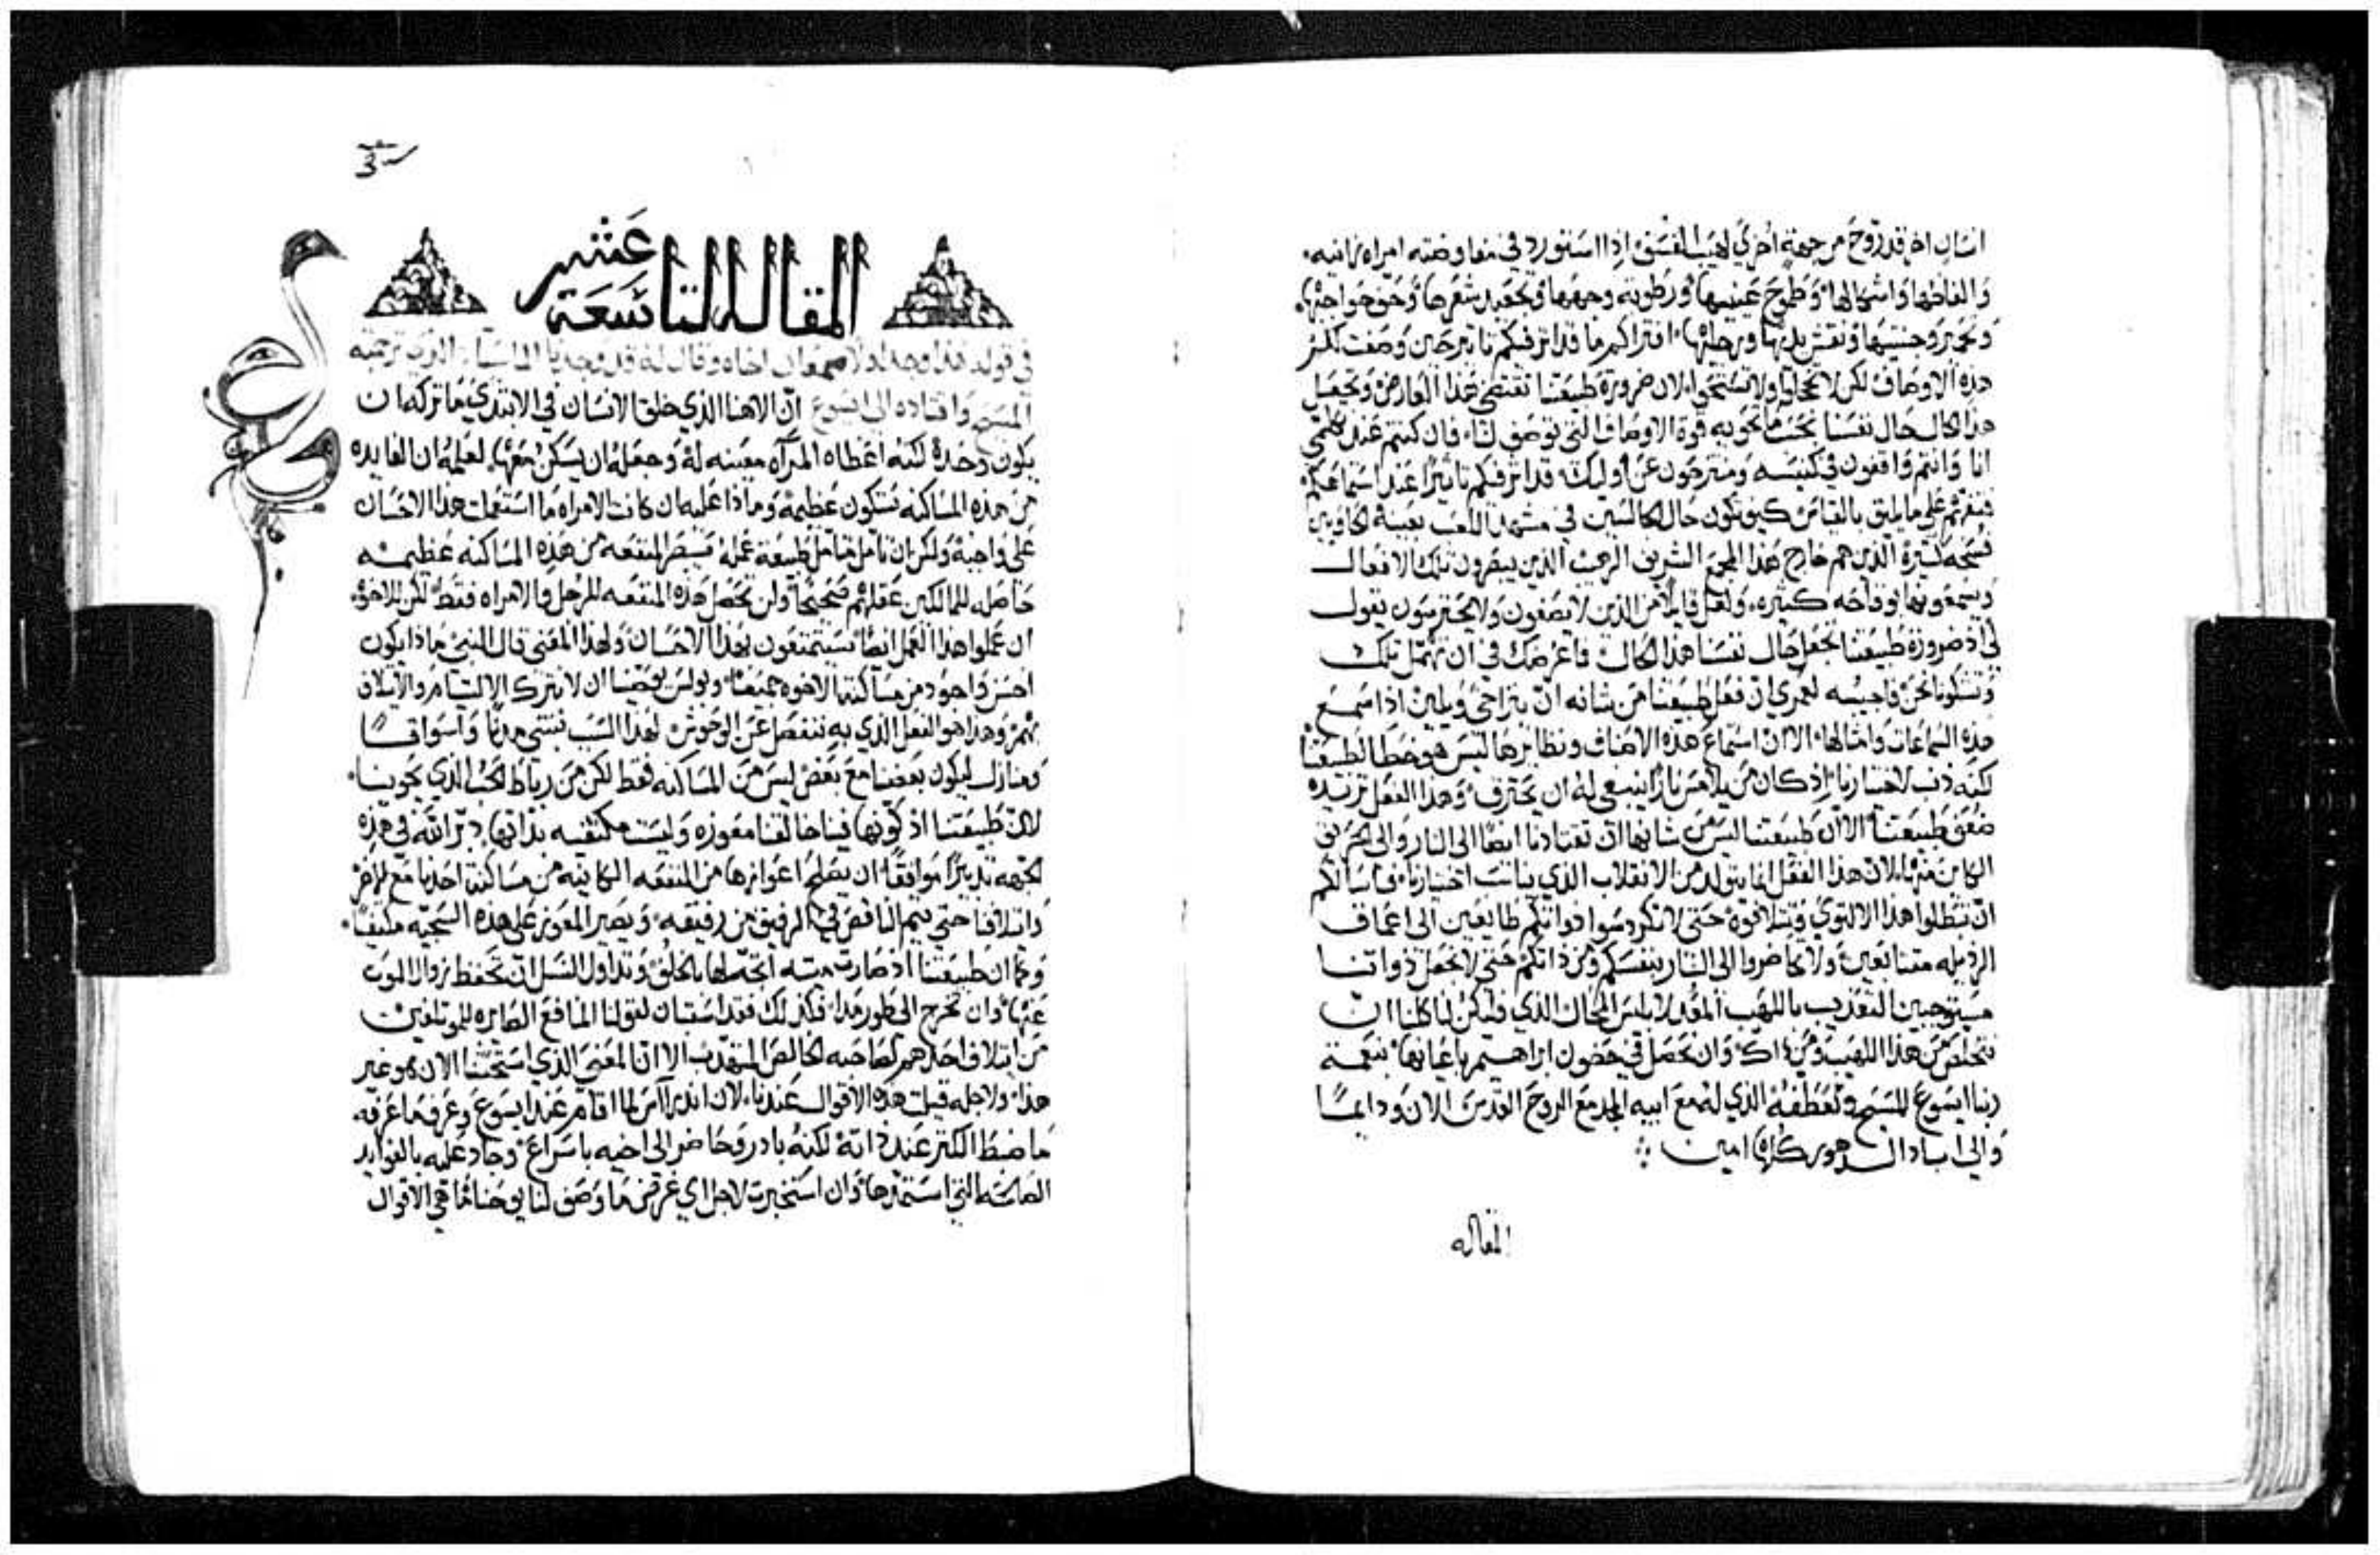 انسان اخر قد روح من جهة اخري لهيب الفسق اذا استورد في مفاوضته امراه زانيه
والفاظها واشكالها وطموح عينيها ورطوبة وجهها وتجعيد شعرها وحف حواجبها
وتحمير وجنتيها ونقش يديها ورجليها افتراكم ما قد اثر فيكم تاتير حين وصفت لكم
هذه الاوصاف لكن لا تخجلوا ولا تستحوا لان ضرورة طبيعتنا تقتضي هذا العارض وتجعل
هذا الحال حال نفسنا بحسب ما تحويه قوة الاوصاف التي توصف لنا فان كنتم عند تكلمي
انا وانتم واقفون في كنيسه ومنتزحون عن اوليك قد اثر فيكم تاتيرا عند استماعكم
على ما يليق بالقياس كيف تكون حال الجالسين في مشهد اللعب بعينه
الذين هم خارج هذا المجمع الشريف الرهب الذين يبصرون تلك الافعال
ويسمعونها بوقاحه كثيره ولعل قايلا من الذين لا يصغون ولا يحترسون يقول
لي اذ ضرورة طبيعتنا تجعل حال نفسنا هذا الحال فما غرضك في ان تهمل تلك
وتشكونا نحن فاجيبه لعمري ان فعل طبيعتنا من شانه ان يتراخي ويلين اذا سمع
هذه السماعات وامثالها الا ان استماع هذه الاصناف ونظايرها ليس هو خطا لطبيعتنا
لكنه ذنب لاختيارنا اذ كان من يلامس نارا ينبغي له ان يحترق وهذا الفعل تزيده
ضعف طبيعتنا الا ان طبيعتنا ليس من شانها ان تقتادنا ايضا الى النار والى الحريق
الكاين منها لان هذا الفعل انما يتولد من الانقلاب الذي ينانت اختيارنا فاسالكم
ان تبطلوا هذا الالتوي وتتلافوه حتى لا تكردسوا ذواتكم طايعين الى اعماق
الرذيله متتابعين ولا تحاضروا الى النار بنفسكم ومن ذاتكم حتى لا نجعل ذواتنا
مستوجبين التعذيب باللهيب المعد لابليس المحال الذي فليكن لنا كلنا ان
نتخلص من هذا اللهيب ومن ذاك وان نحصل في حضون ابراهيم باعيانها بنعمة
ربنا ايسوع المسيح وتعطفه الذي له مع ابيه المجد مع الروح القدس الان ودايما
والي اباد الدهور كلها امين
المقاله
المقاله التاسعة عشر
في قوله هذا وجد اولا سمعان اخاه وقال له قد وجدنا الماسيا الذي ترجمته
المسيح واقتاده الي ايسوع ان الاهنا الذي خلق الانسان في الابتدي ما تركه ان
يكون وحده لكنه اعطاه المرآه معينه له وجعله ان يسكن معها لعلمه ان الفايده
من هذه المساكنه ستكون عظيمة وماذا عليه ان كانت الامراه ما استعملت هذا الاحسان
على واجبه ولكن ان تامل متامل طبيعة عمله فيبصر المنفعه من هذه المساكنه عظيمه
حاصله للمالكين عقلهم صحيحا ولن تحصل هذه المنفعه للرجل والامراه فقط لكن للاخوه
ان عملوا هذا العمل ايضا سيتمتعون بهذا الاحسان ولهذا المعني قال النبي ماذا يكون
احسن واجود من مساكنة الاخوه جميعا وبولس يوصينا ان لا نترك الالتيام والايتلاف
بهم وهذا هو الفعل الذي به ننفصل عن الوحوش لهذا السبب نبتني مدنا واسواقا
ومنازل ليكون بعضنا مع بعض ليس من المساكنه فقط لكن من رباط الحب الذي يحوينا
لان طبيعتنا اذ كونها فينا خالقنا معوزه وليست مكتفيه بذاتها دبر الله في هذه
الجهه تدبيرا موافقا ان يصلح اعوازها من المنفعه الكاينه من مساكنة احدنا مع الاخر
وايتلافنا حتى يتم الناقص في الرفيق من رفيقه ويصير المعوز على هذه السجيه مكتفيا
وكما ان طبيعتنا اذ صارت ميته اتجه لها بالخلق وتداول النسل ان تحفظ زوال الموت
عنها وان تخرج الى طور هذا فكذلك فقد استبان لقولنا المنافع الصايره للموتلفين
من ايتلاف احدهم لصاحبه الخالص المتهذب الا ان المعني الذي استحثنا الان هو غير
هذا ولاجله قيلت هذه الاقوال عندنا لان اندراس لما اقام عند ايسوع وعرف ما عرفه
ما ضبط الكنز عند ذاته لكنه بادر وحاضر الى اخيه باسراع وجاد عليه بالفوايد
الصالحه التي استمدها وان استخبرت لاجل اي غرض ما وصف لنا يوحنا ما هي الاقوال